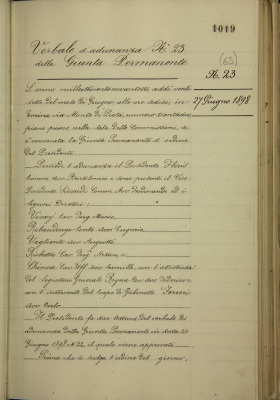 1019
Verbale d'adunanza N. 23
della Giunta Permanente
(63)
N. 23
27 Giugno 1898
L'anno milleottocentonovantotto, addì venti
sette del mese di Giugno, alle ore sedici, in
Torino via Monte di Pietà numero
piano primo, nella sala delle Commissioni, si
è convocata la Giunta Permanente d'ordine
del Presidente
Presiede l'adunanza il Presidente
Comm. Avv. Bartolomeo e sono presenti il Vice
Presidente Ricardi Comm. Avv. Ferdinando ed i
Signori Direttori:
Cav. Luigi Mario
Rebaudengo Conte Avv. Eugenio
Cav. Augusto
Cav. Luigi
Cav. Uff. Avv. Camillo, con l'assistenza
del Segretario Generale Cav. Avv.
con l'intervento del Capo di Gabinetto
Avv. Carlo
Il Presidente fa dar lettura del verbale di
adunanza della Giunta Permanente in data
Giugno 1898 N. 22, il quale viene approvato
Prima che si svolga l'ordine del giorno,